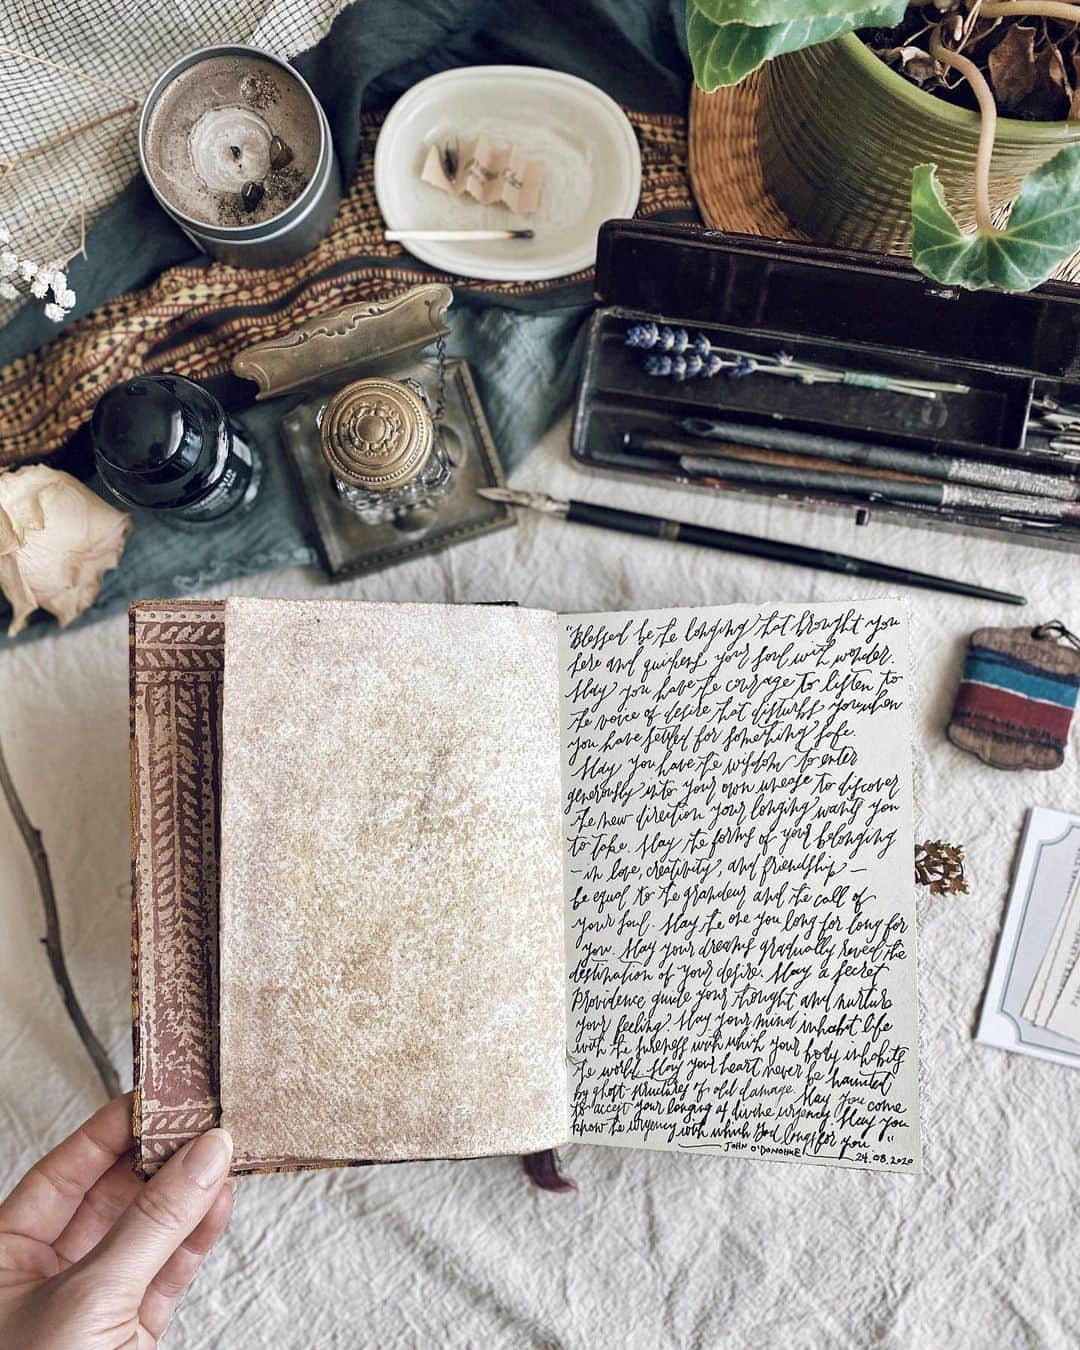 "Blessed be the longing that brought you
here and quickens your soul with wonder.
May you have the courage to listen to
the voice of desire that disturbs you when
you have settled for something safe.
May you have the wisdom to enter
generously into your own unease to discover
the new direction your longing wants you
to take. May the forms of your belonging
– in love, creativity, and friendship –
be equal to the grandeur and the call of
your soul. May the one you long for long for
you. May your dreams gradually reveal the
destination of your desire. May a secret
Providence guide your thought and nurture
your feeling. May your mind inhabit life
with the sureness with which your body inhabits
the world. May your heart never be haunted
by ghost-structures of old damage. May you come
to accept your longing as divine urgency. May you
know the urgency with which God longs for you."
JOHN O'DONOHUE
24.08.2020